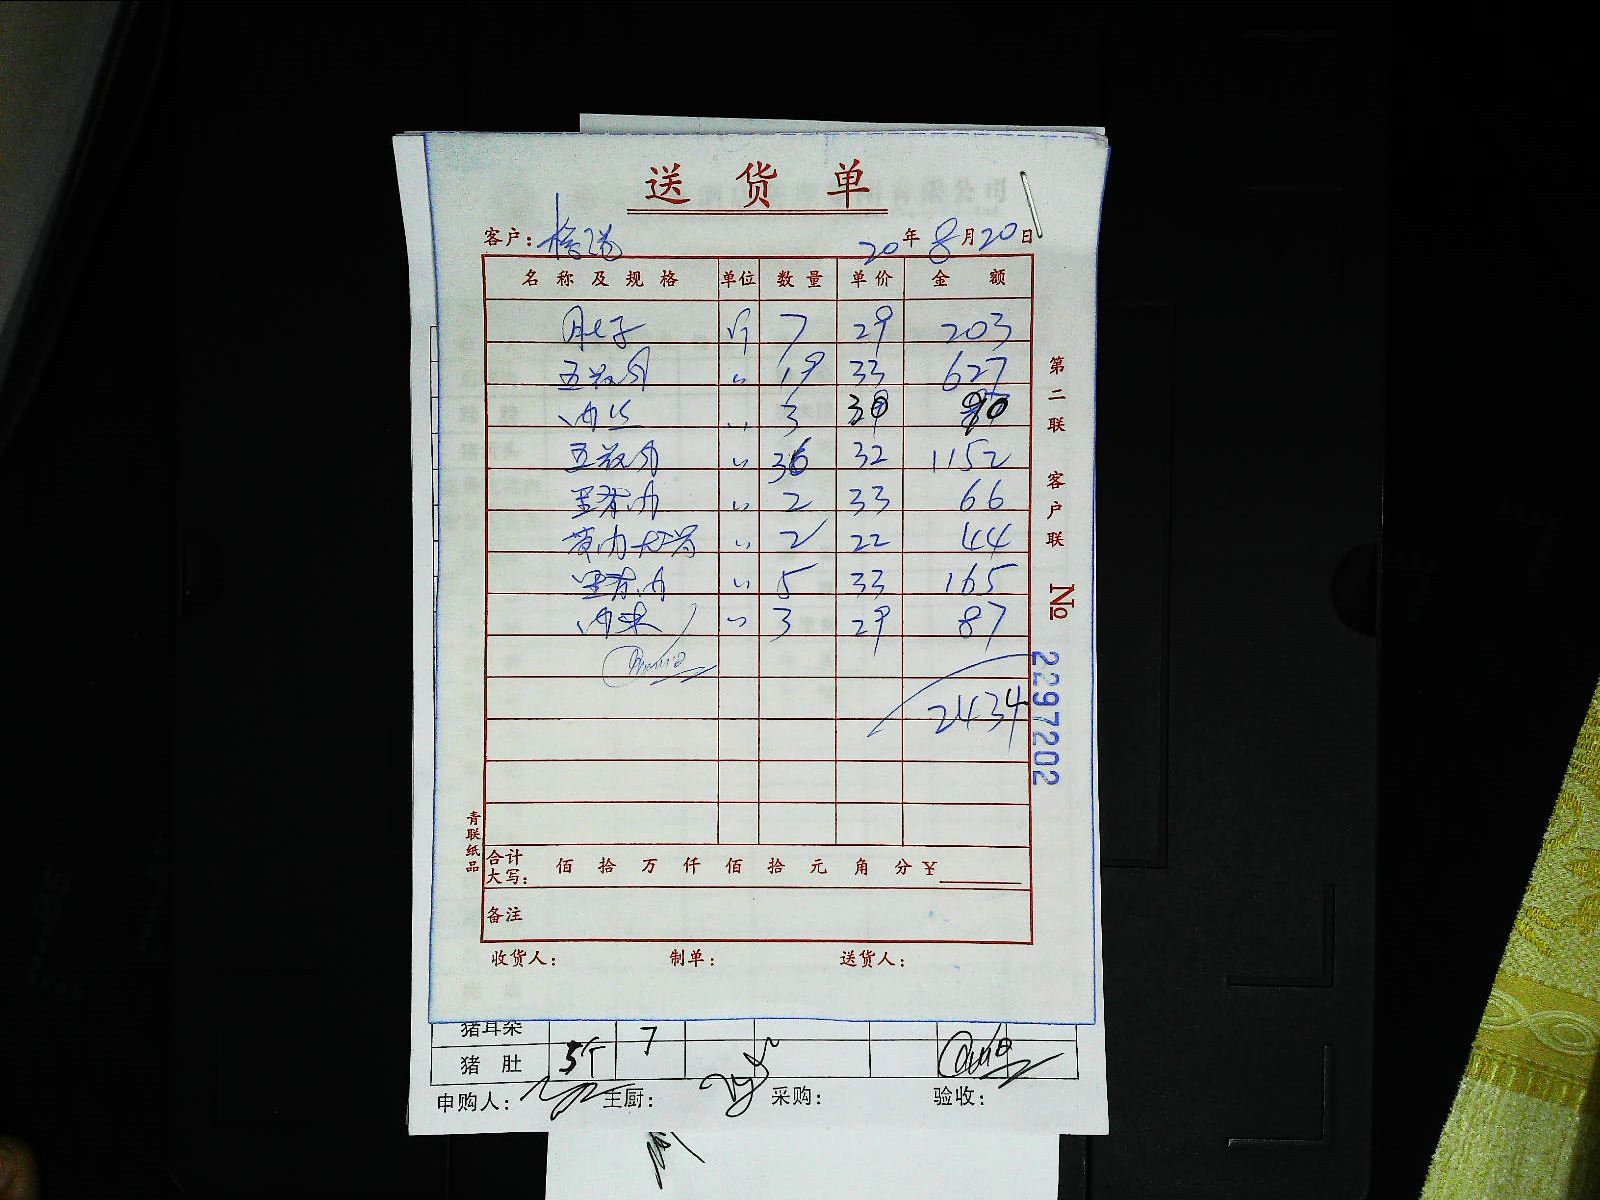 送货单
客户: 20年8月20日
名称及规格 单位 数量 单价 金额
肚子 斤 7 29 203
五花肉 〃 19 33 627
肉丝 〃 3 30 90
五花肉 〃 36 32 1152
里脊肉 〃 2 33 66
带肉大骨 〃 2 22 44
里脊肉 〃 5 33 165
肉末 〃 3 29 87
2434
合计大写: 佰 拾 万 仟 佰 拾 元 角 分 ¥
备注
收货人: 制单: 送货人:
第二联 客户联
No 2297202
青联纸品
猪耳朵 7
猪肚 5个
申购人: 主厨: 采购: 验收: